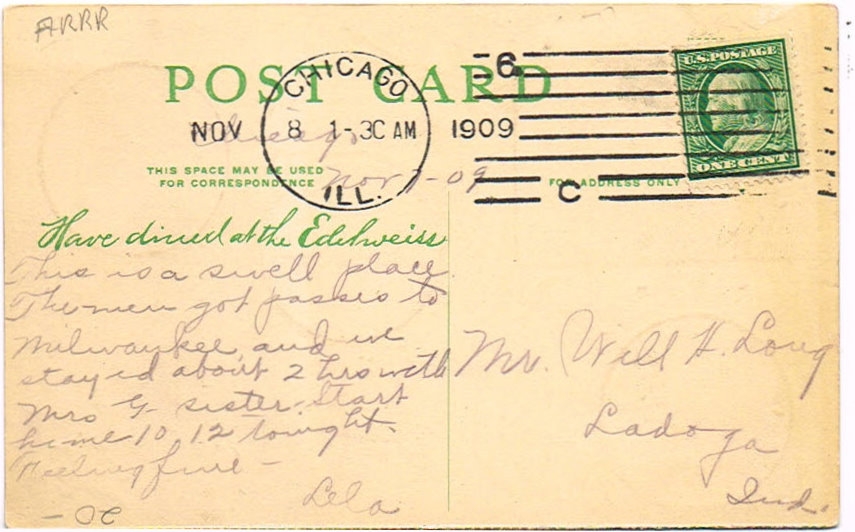 ARRR
POST CARD
CHICAGO
NOV 8 1-30 AM 1909
ILL.
6
C
U.S. POSTAGE
ONE CENT
Chicago
Nov 7-09
THIS SPACE MAY BE USED
FOR CORRESPONDENCE
FOR ADDRESS ONLY
Have dined at the Edelweiss
This is a swell place
The men got passes to
Milwaukee and we
stayed about 2 hrs with
Mrs G sister. Start
home 10,12 tonight.
Feeling fine -
Lela
Mr. Will H. Long
Ladoga
Ind.